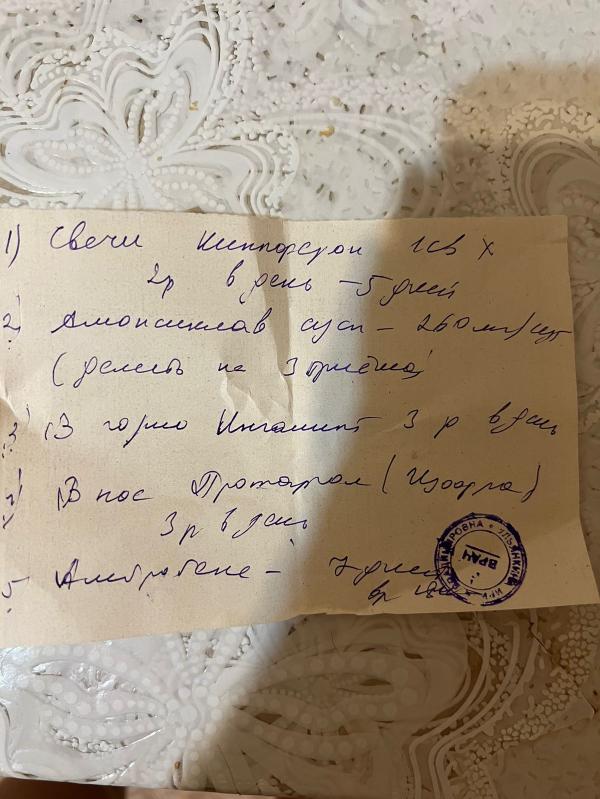 1) Свечи Кипферон 1св х
2р в день – 5 дней
2) Амоксиклав сусп – 260 мг/сут
(делить на 3 приёма)
3) В горло Ингалипт 3 р в день
4) В нос Протаргол (Изофра)
3 р в день
5 Амбробене – 7 дней
ВРАЧ